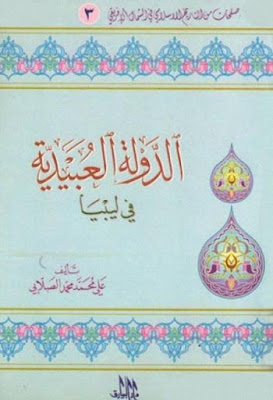 صفحات من التاريخ الإسلامي في الشمال الإفريقي
٣
الدولة العبيدية
في ليبيا
تأليف
علي محمد محمد الصلابي
دار البيارق